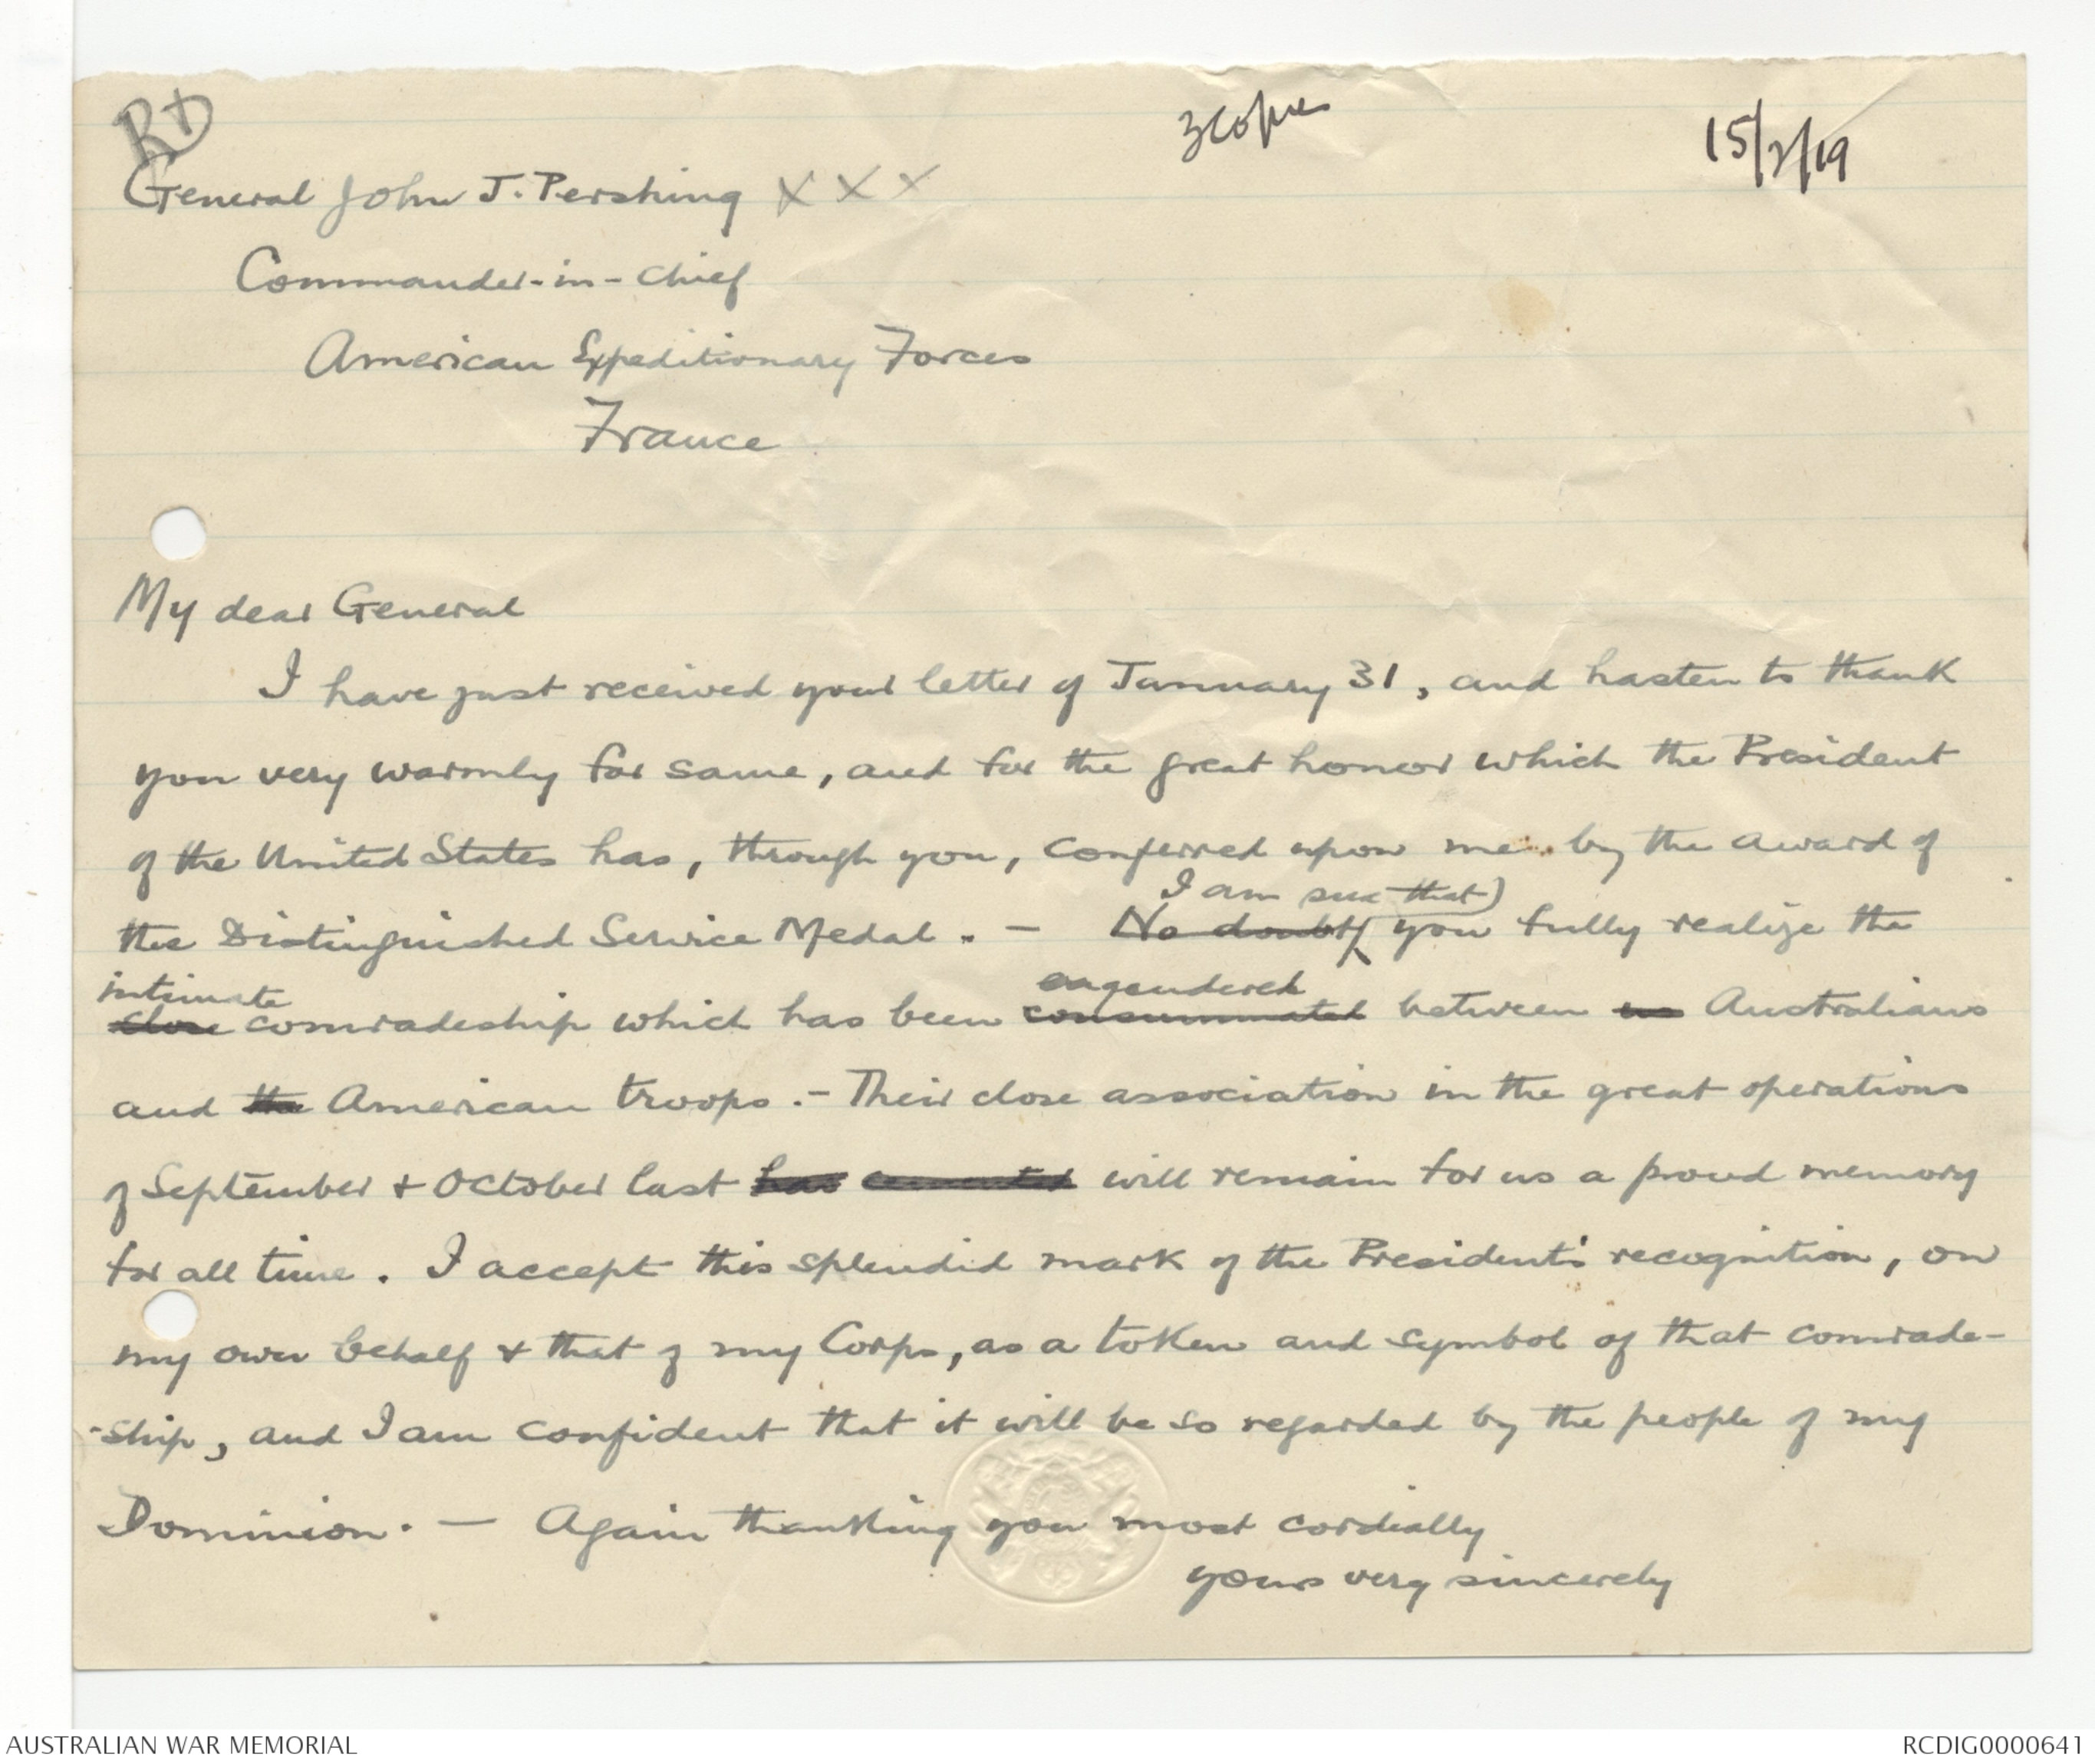 RD
3 copies
15/2/19
General John J. Pershing X X X
Commander-in-Chief
American Expeditionary Forces
France
My dear General
I have just received your letter of January 31, and hasten to thank
you very warmly for same, and for the great honor which the President
of the United States has, through you, conferred upon me by the award of
I am sure that)
the Distinguished Service Medal. — No doubt you fully realize the
intimate engendered
close comradeship which has been consummated between us Australians
and the American troops. – Their close association in the great operations
of September & October last has cemented will remain for us a proud memory
for all time. I accept this splendid mark of the President's recognition, on
my own behalf & that of my Corps, as a token and symbol of that comrade-
-ship, and I am confident that it will be so regarded by the people of my
Dominion. — Again thanking you most cordially
yours very sincerely
AUSTRALIAN WAR MEMORIAL
RCDIG0000641